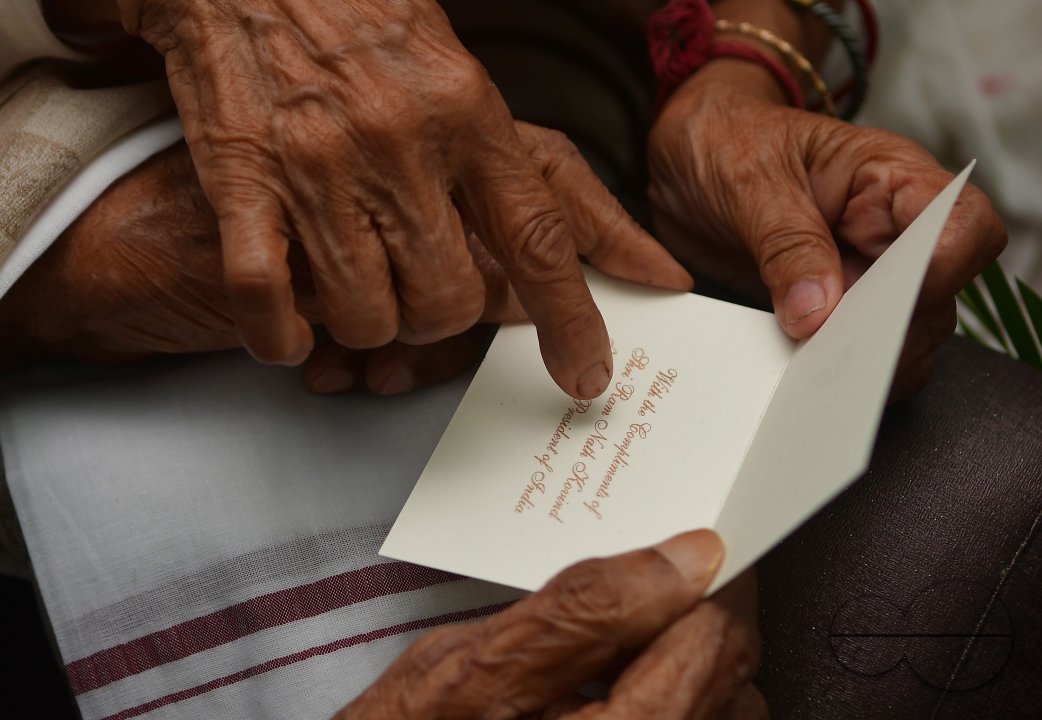 With the Compliments of
Shri Ram Nath Kovind
President of India